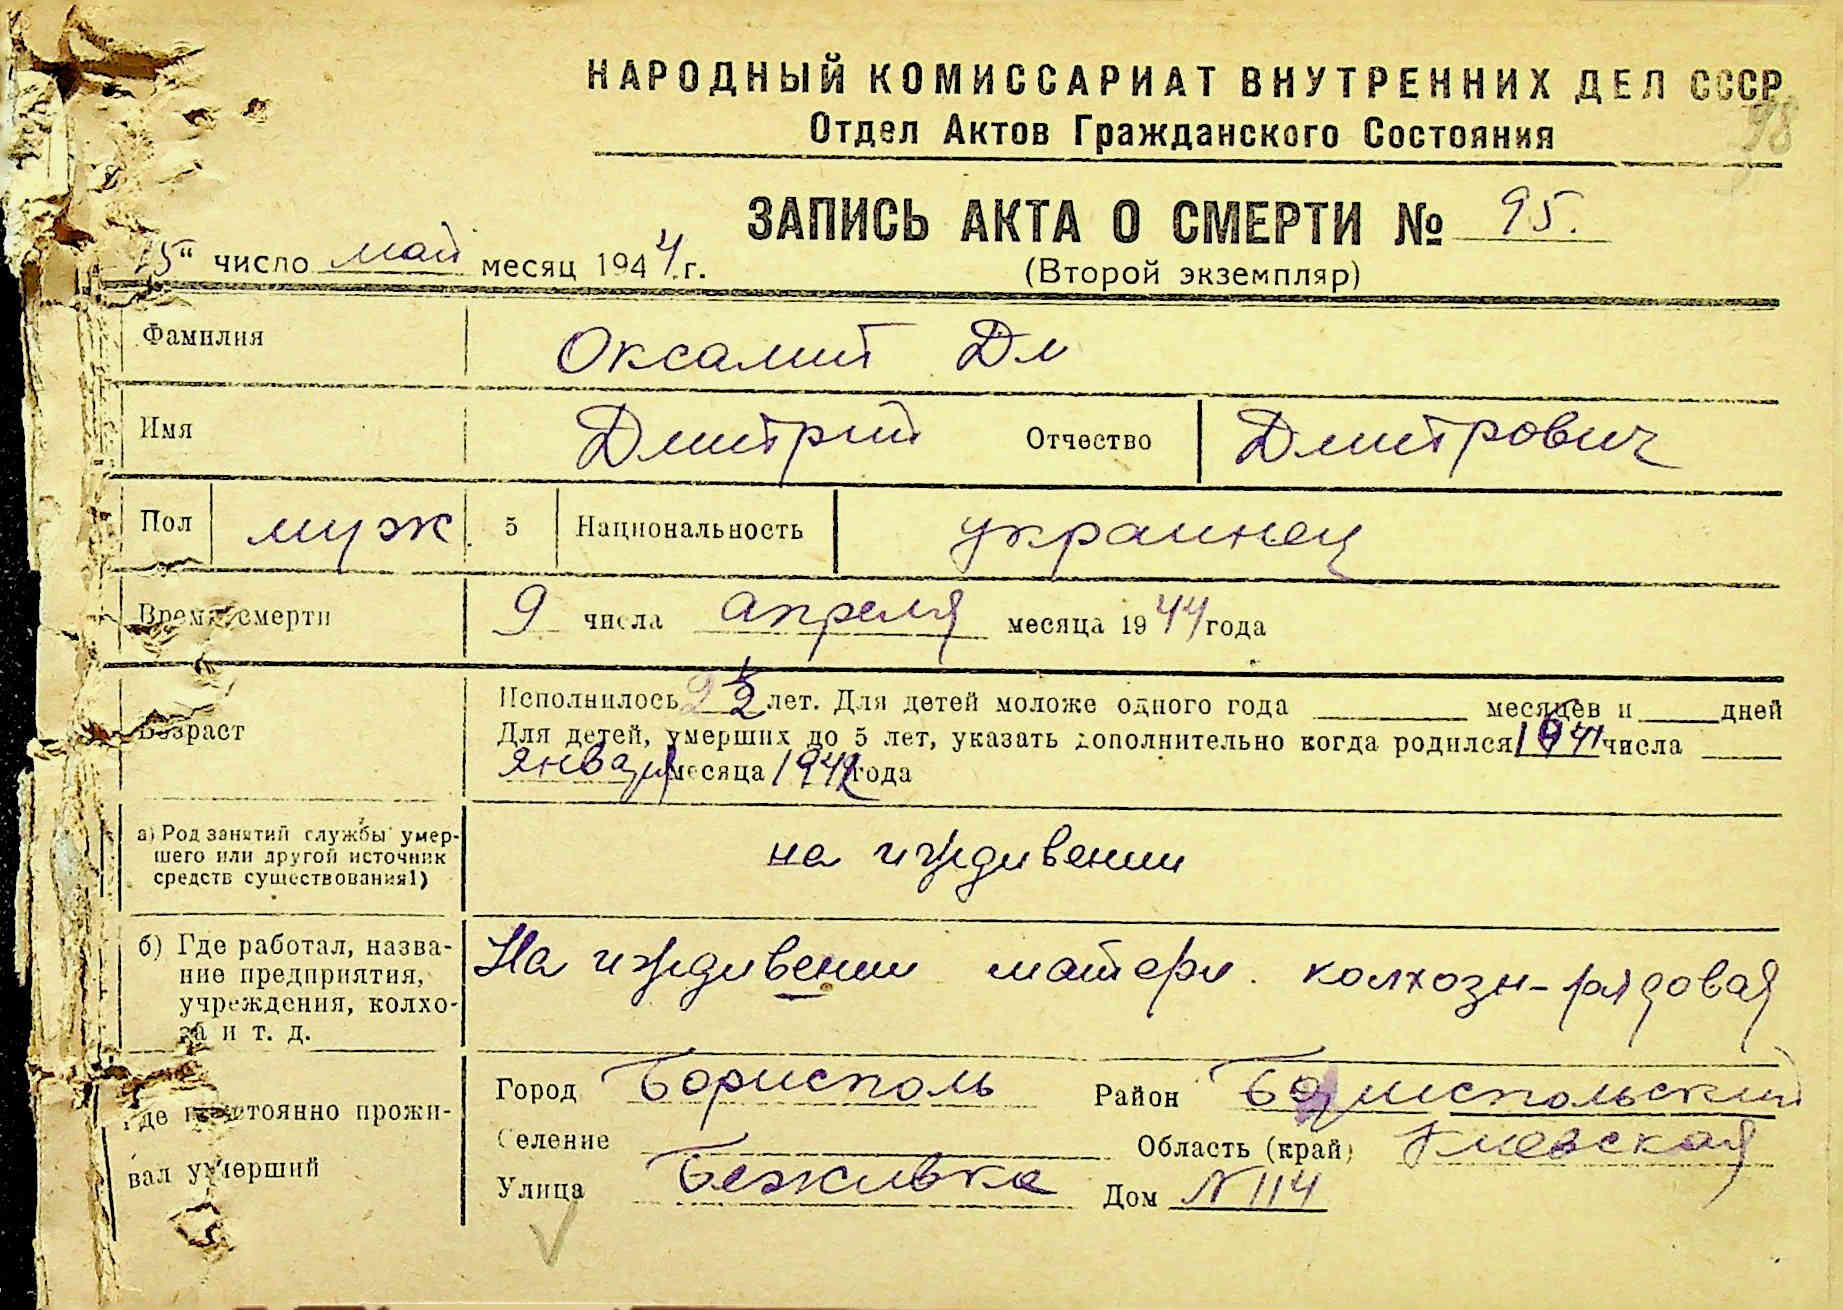 НАРОДНЫЙ КОМИССАРИАТ ВНУТРЕННИХ ДЕЛ СССР
98
Отдел Актов Гражданского Состояния
ЗАПИСЬ АКТА О СМЕРТИ № 95.
15" число май месяц 1944 г.
(Второй экземпляр)
Фамилия Оксамит Дм
Имя Дмитрий Отчество Дмитрович
Пол муж. 5 Национальность украинец
Время смерти 9 числа апреля месяца 1944 года
Возраст
Исполнилось 2 лет. Для детей моложе одного года месяцев и дней
Для детей, умерших до 5 лет, указать дополнительно когда родился числа
января месяца 1942 года
а) Род занятий службы умер-
шего или другой источник
средств существования1)
на иждивении
б) Где работал, назва-
ние предприятия,
учреждения, колхо-
за и т. д.
На иждивении матери. колхозн-рядовая
Где постоянно прожи-
вал умерший
Город Борисполь Район Бориспольский
Селение Область (край) Киевская
Улица Безживка Дом №114